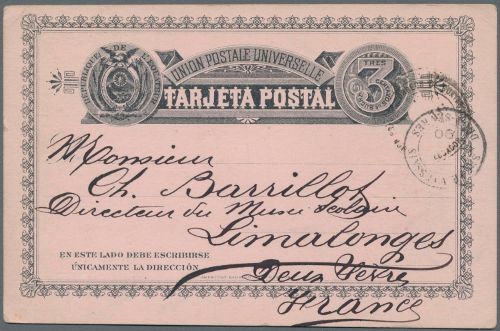 REPUBLIQUE DE L'EQUATEUR
UNION POSTALE UNIVERSELLE
TRES
3
CENTAVOS
TARJETA POSTAL
Monsieur
Ch. Barrillot
Directeur du Musée scolaire
Limalonges
EN ESTE LADO DEBE ESCRIBIRSE
ÚNICAMENTE LA DIRECCIÓN.
Deux Sèvres
France